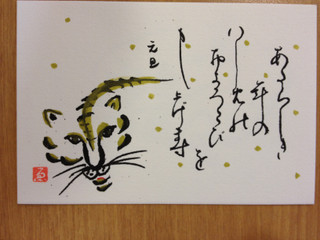 あたらしき
年の
はじめの
およろこび
を
申し上げ寿
元旦